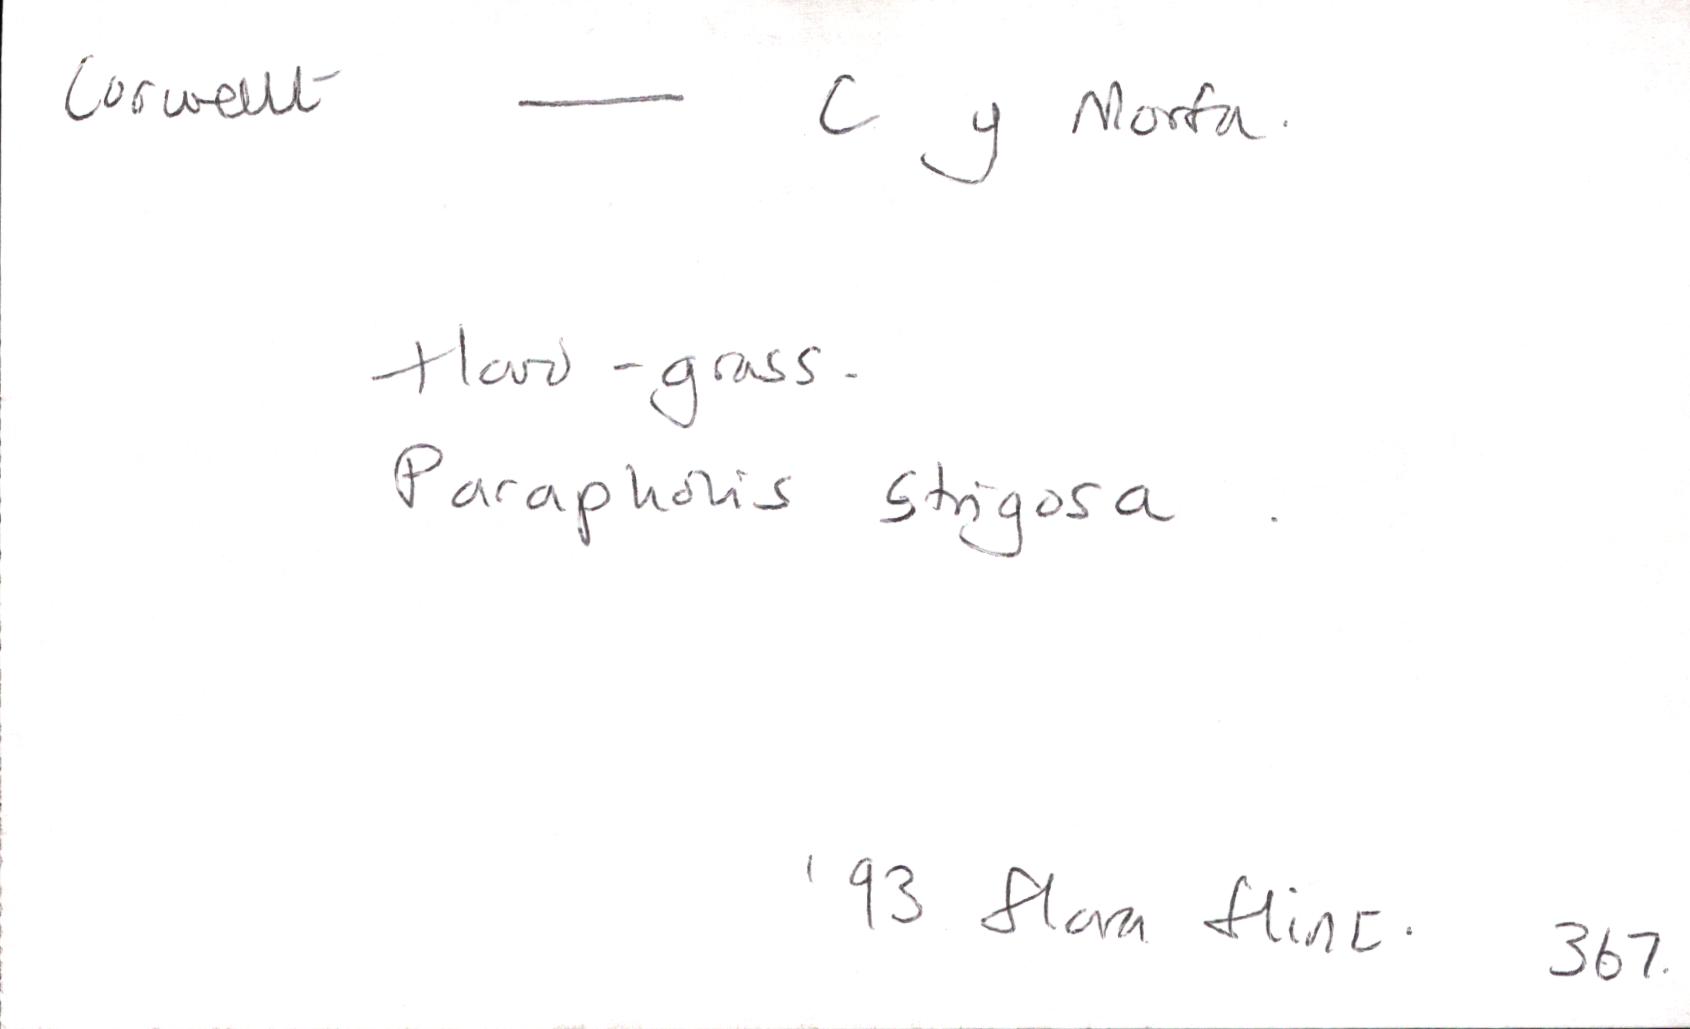 Corwellt — C y Morfa.
Hard-grass.
Parapholis Strigosa.
'93 flora flint. 367.